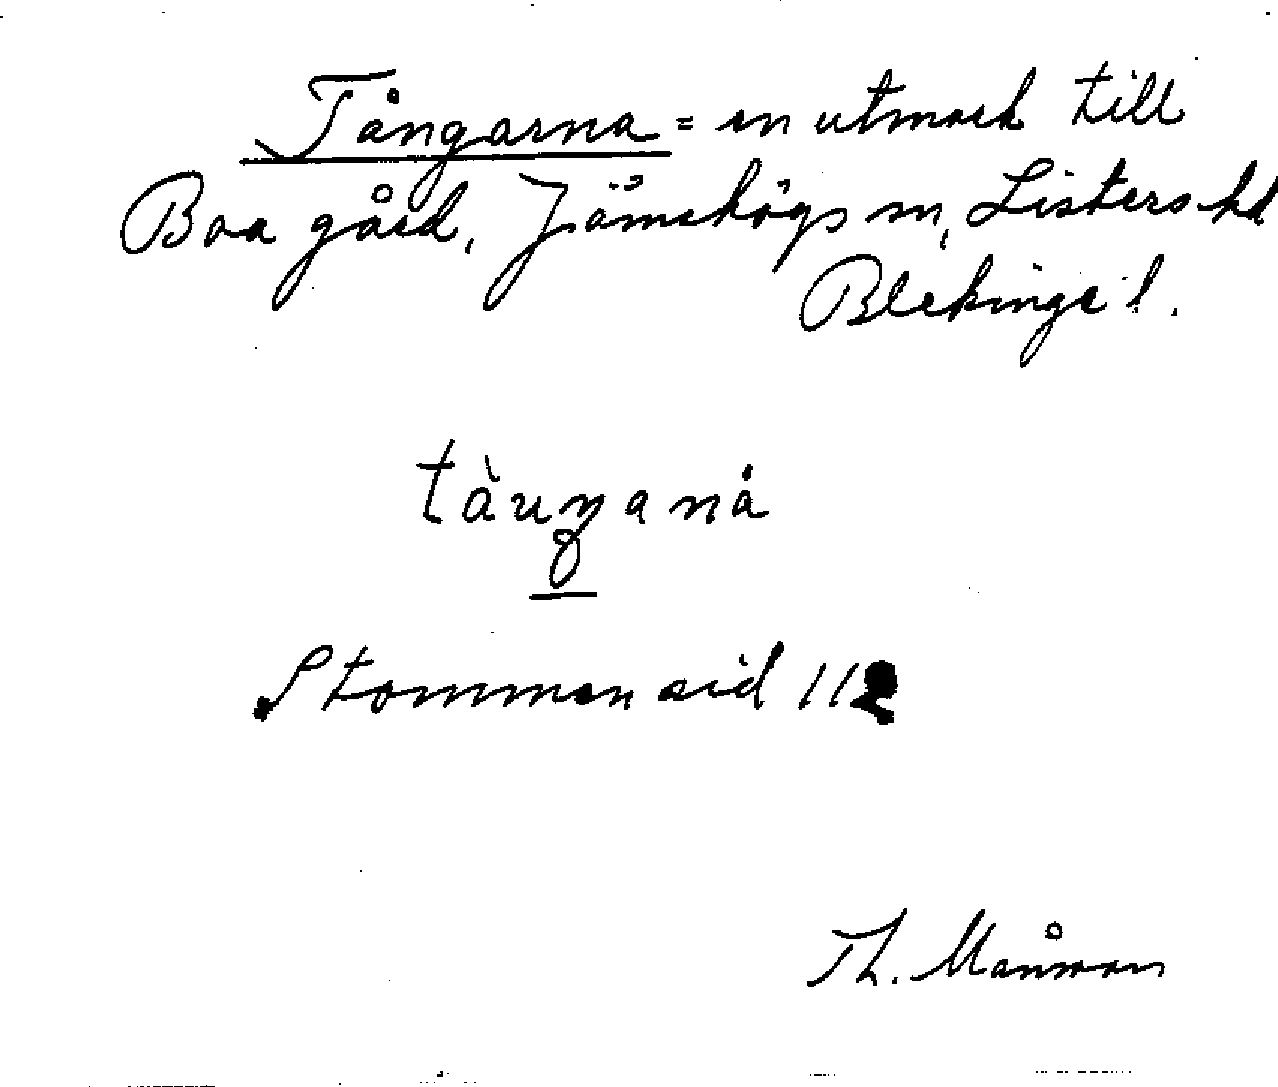 Tångarna = en utmark till
Boa gård, Jämshögs sn, Listers hd
Blekinge l.
tàuŋanå
Stommen sid 112
Th. Månsson